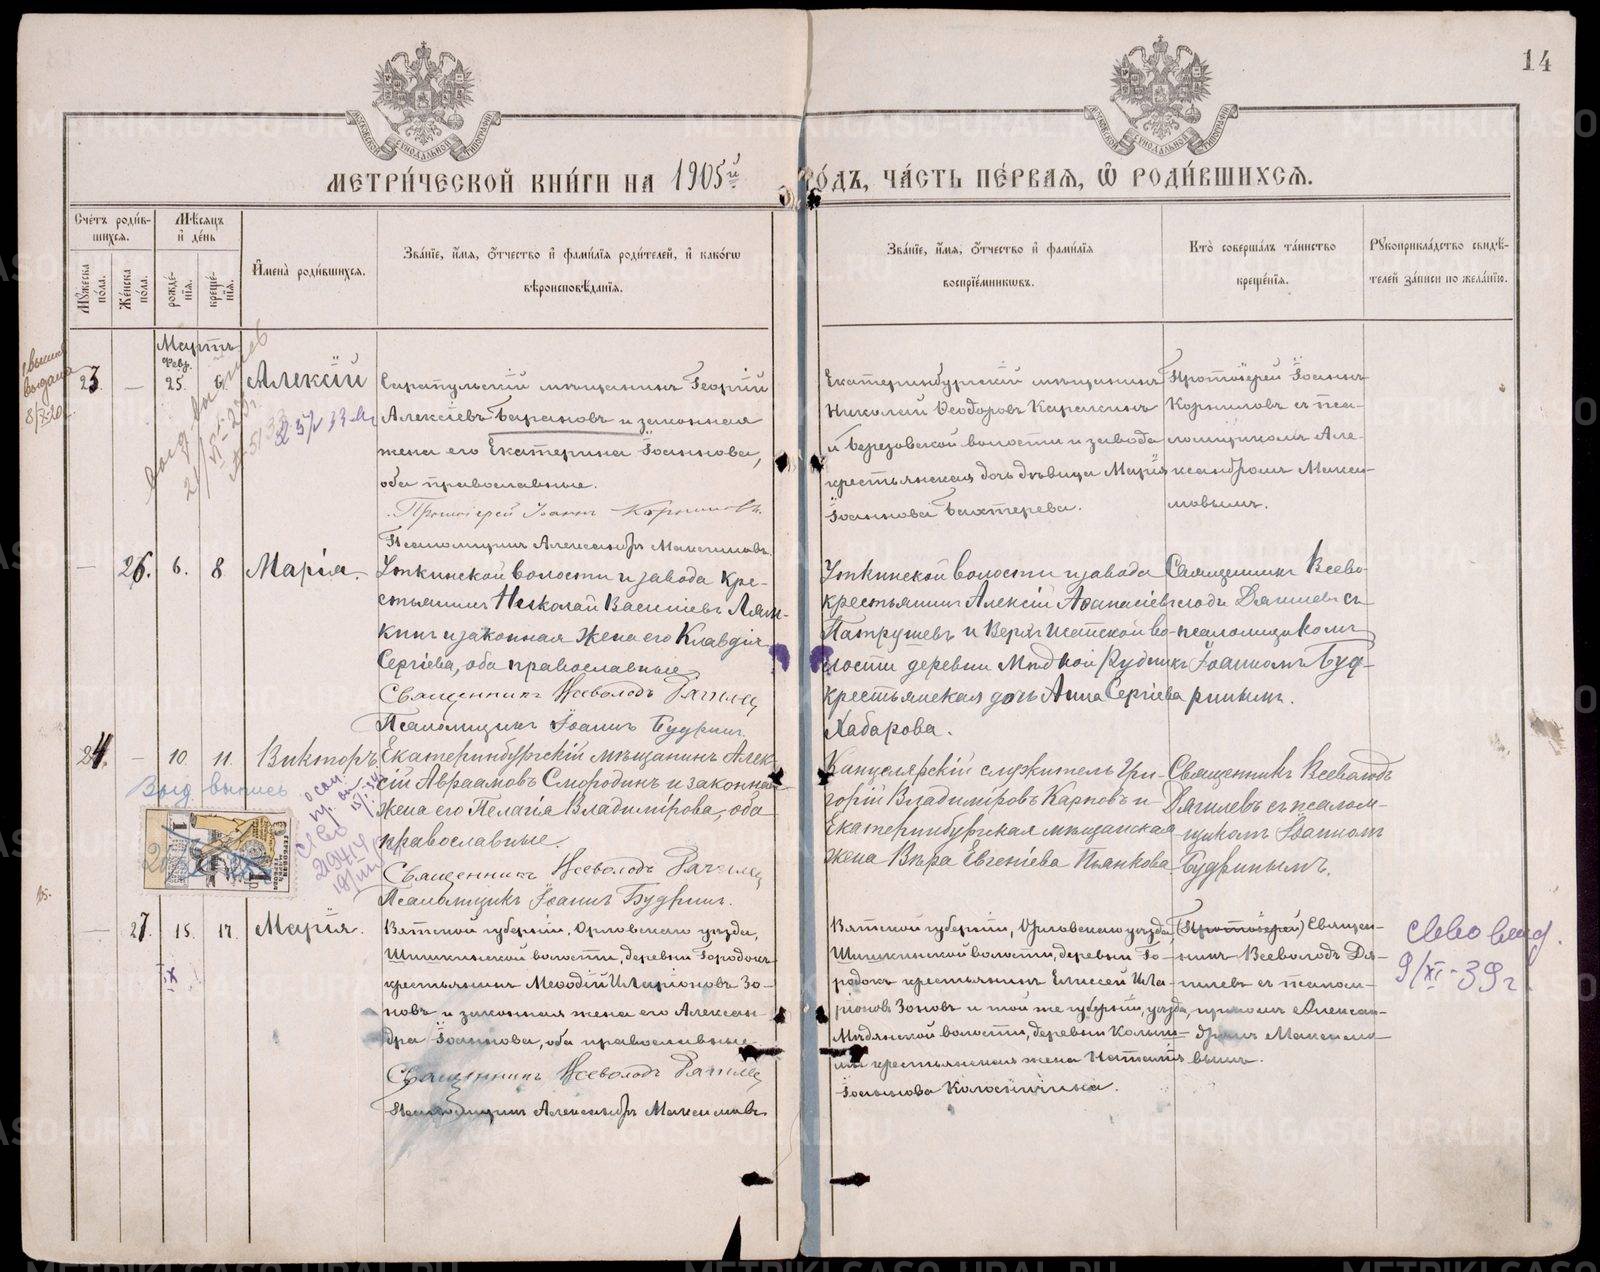 14
МОСКОВСКОЙ СѴНОДАЛЬНОЙ ТИПОГРАФІИ
МОСКОВСКОЙ СѴНОДАЛЬНОЙ ТИПОГРАФІИ
МЕТРИ́ЧЕСКОЙ КНИ́ГИ НА 1905й ГО́ДЪ, ЧА́СТЬ ПЕ́РВАЯ, Ѡ РОДИ́ВШИХСЯ.
Счетъ роди́в-
шихся.
Мѣсяцъ
и де́нь
Мꙋжеска по́ла.
Же́нска по́ла.
рожде́-
нія.
креще́-
нія.
Имена̀ роди́вшихся.
Зва́ніе, и́мя, о́тчество и фами́лія роди́телей, и како́гѡ
вѣроисповѣ́данія.
Зва́ніе, и́мя, о́тчество и фами́лія
воспріе́мникѡвъ.
Кто̀ соверша́лъ та́инство
креще́нія.
Рꙋкоприкла́дство свидѣ́-
телей за́писи по жела́нію.
Мартъ
Февр.
23. — 25. 6. Алексій
Сарапульскій мѣщанинъ Георгій
Алексіевъ Барановъ и законная
жена его Екатерина Іоаннова,
оба православные.
Протоіерей Іоаннъ Корниловъ.
Псаломщикъ Александръ Максимовъ.
Екатеринбургскій мѣщанинъ
Николай Ѳеодоровъ Каралкинъ
и Березовской волости и завода
крестьянская дочь дѣвица Марія
Іоаннова Бахтерева.
Протоіерей Іоаннъ
Корниловъ съ пса-
ломщикомъ Але-
ксандромъ Макси-
мовымъ.
— 26. 6. 8. Марія.
Уткинской волости и завода кре-
стьянинъ Николай Васильевъ Лям-
кинъ и законная жена его Клавдія
Сергіева, оба православные
Священникъ Всеволодъ Дягилевъ
Псаломщикъ Іоаннъ Будринъ.
Уткинской волости и завода
крестьянинъ Алексій Аѳанасіевъ
Патрушевъ и Верхъ Исетской во-
лости деревни Мѣдной Рудникъ
крестьянская дочь Анна Сергіева
Хабарова.
Священникъ Всево-
лодъ Дягилевъ съ
псаломщикомъ
Іоанномъ Буд-
ринымъ.
24. — 10. 11. Викторъ
Екатеринбургскій мѣщанинъ Алек-
сій Авраамовъ Смородинъ и законная
жена его Пелагія Владимірова, оба
православные.
Священникъ Всеволодъ Дягилевъ
Псаломщикъ Іоаннъ Будринъ.
Канцелярскій служитель Гри-
горій Владиміровъ Карповъ и
Екатеринбургская мѣщанская
жена Вѣра Евгеніева Пьянкова
Священникъ Всеволодъ
Дягилевъ съ псалом-
щикомъ Іоанномъ
Будринымъ.
Выд выпись
— 27. 15. 17. Марія.
Вятской губерніи, Орловскаго уѣзда,
Шишкинской волости, деревни Городокъ
крестьянинъ Меѳодій Иларіоновъ Зо-
новъ и законная жена его Алексан-
дра Іоаннова, оба православные
Священникъ Всеволодъ Дягилевъ
Псаломщикъ Александръ Максимовъ
Вятской губерніи, Орловскаго уѣзда,
Шишкинской волости, деревни Го-
родокъ крестьянинъ Елисей Ила-
ріоновъ Зоновъ и той же губерніи, уѣзда,
крестьянская жена Наталія
(Протоіерей) Священ-
никъ Всеволодъ Дя-
гилевъ съ псалом-
щикомъ Алексан-
дромъ Максимо-
вымъ.
9/XI-39 г.
METRIKI.GASO-URAL.RU